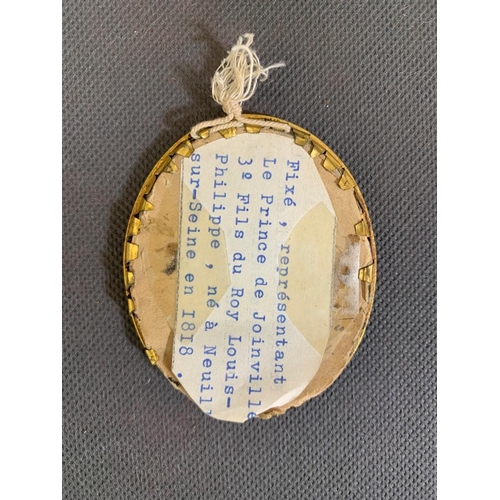 Fixé , représentant
Le Prince de Joinville
3º Fils du Roy Louis-
Philippe , né à Neuil
sur-Seine en 1818 .